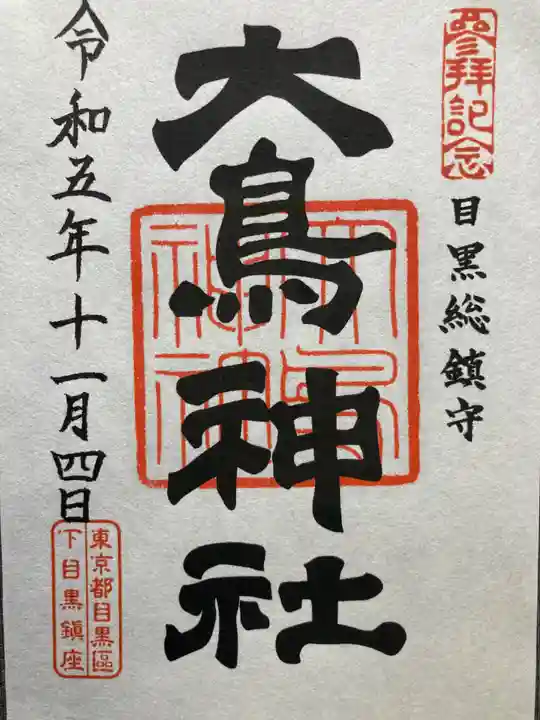 參拜記念
目黒総鎮守
大鳥神社
大鳥神社
令和五年十一月四日
東京都目黒區
下目黒鎮座